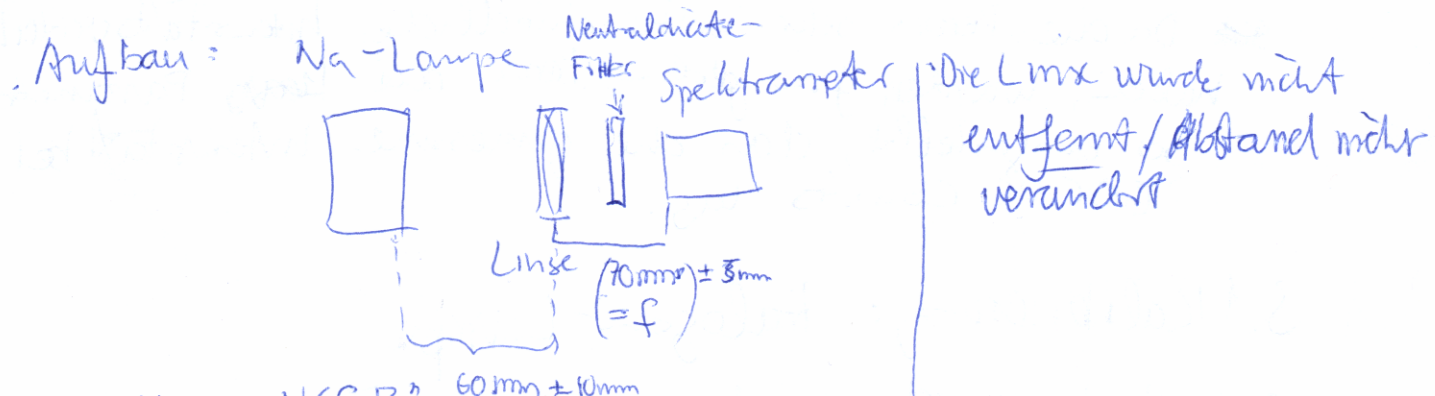 Aufbau: Na-Lampe
Neutraldichte-
Filter
Spektrometer
Linse
(70mm
= f) ± 5mm
60mm ± 10mm
Die Linse wurde nicht
entfernt / Abstand nicht
verändert